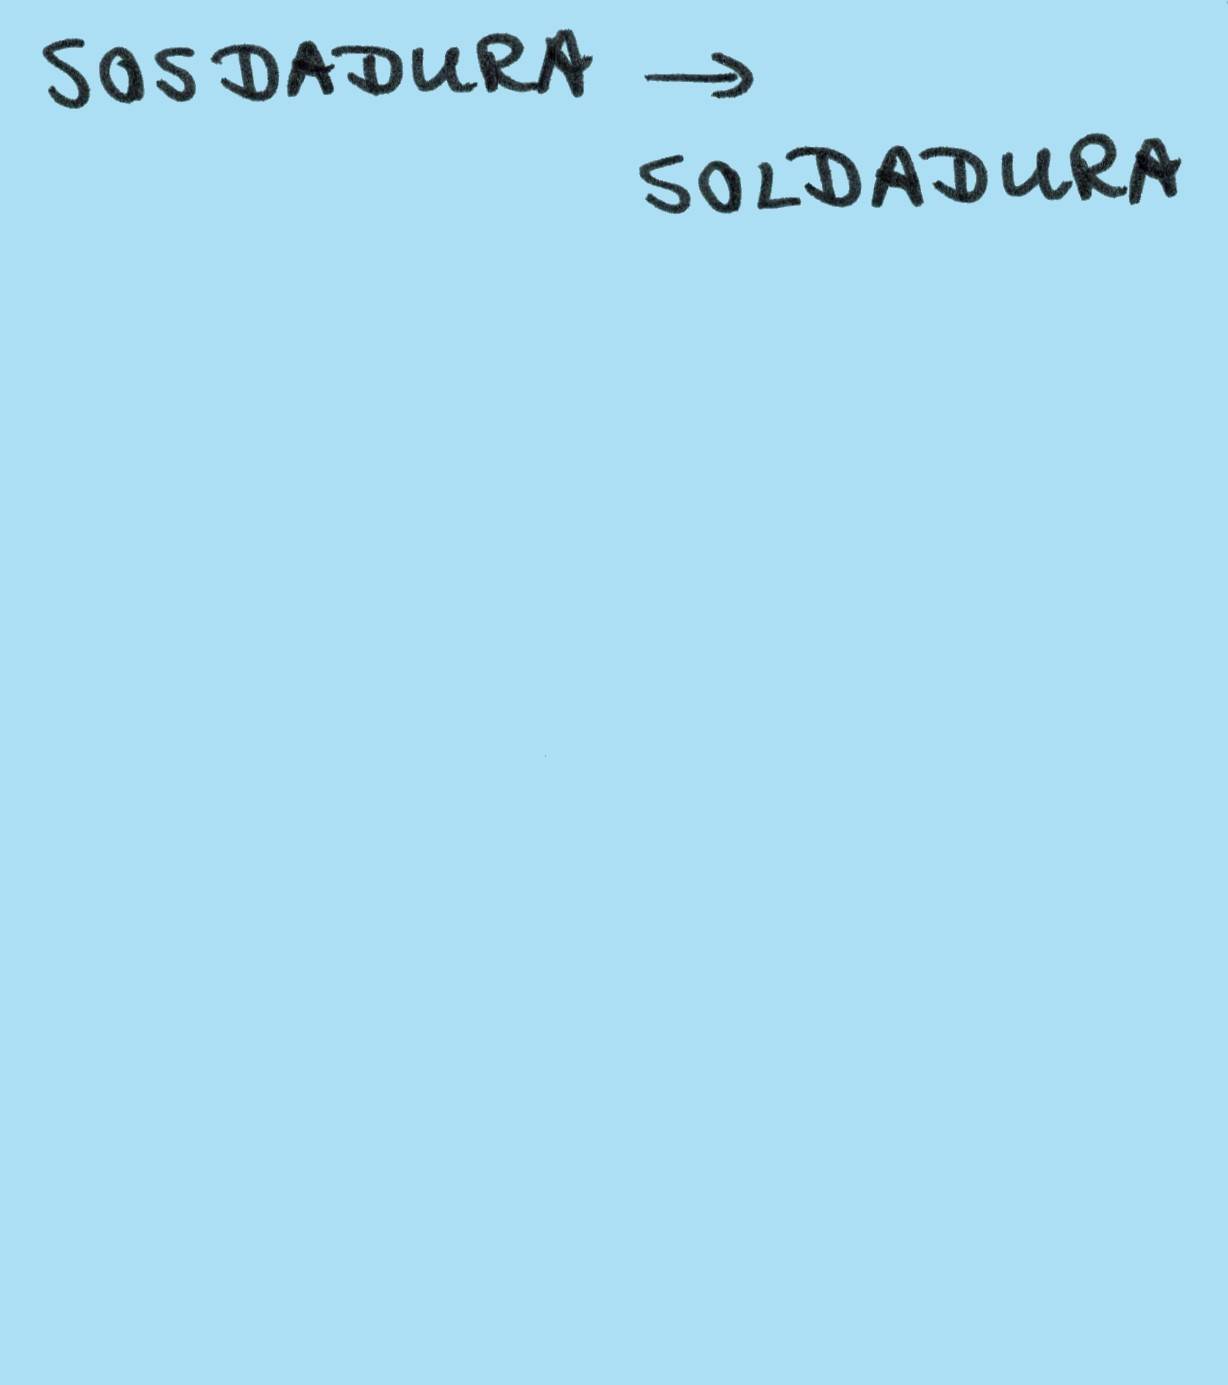 SOSDADURA →
SOLDADURA